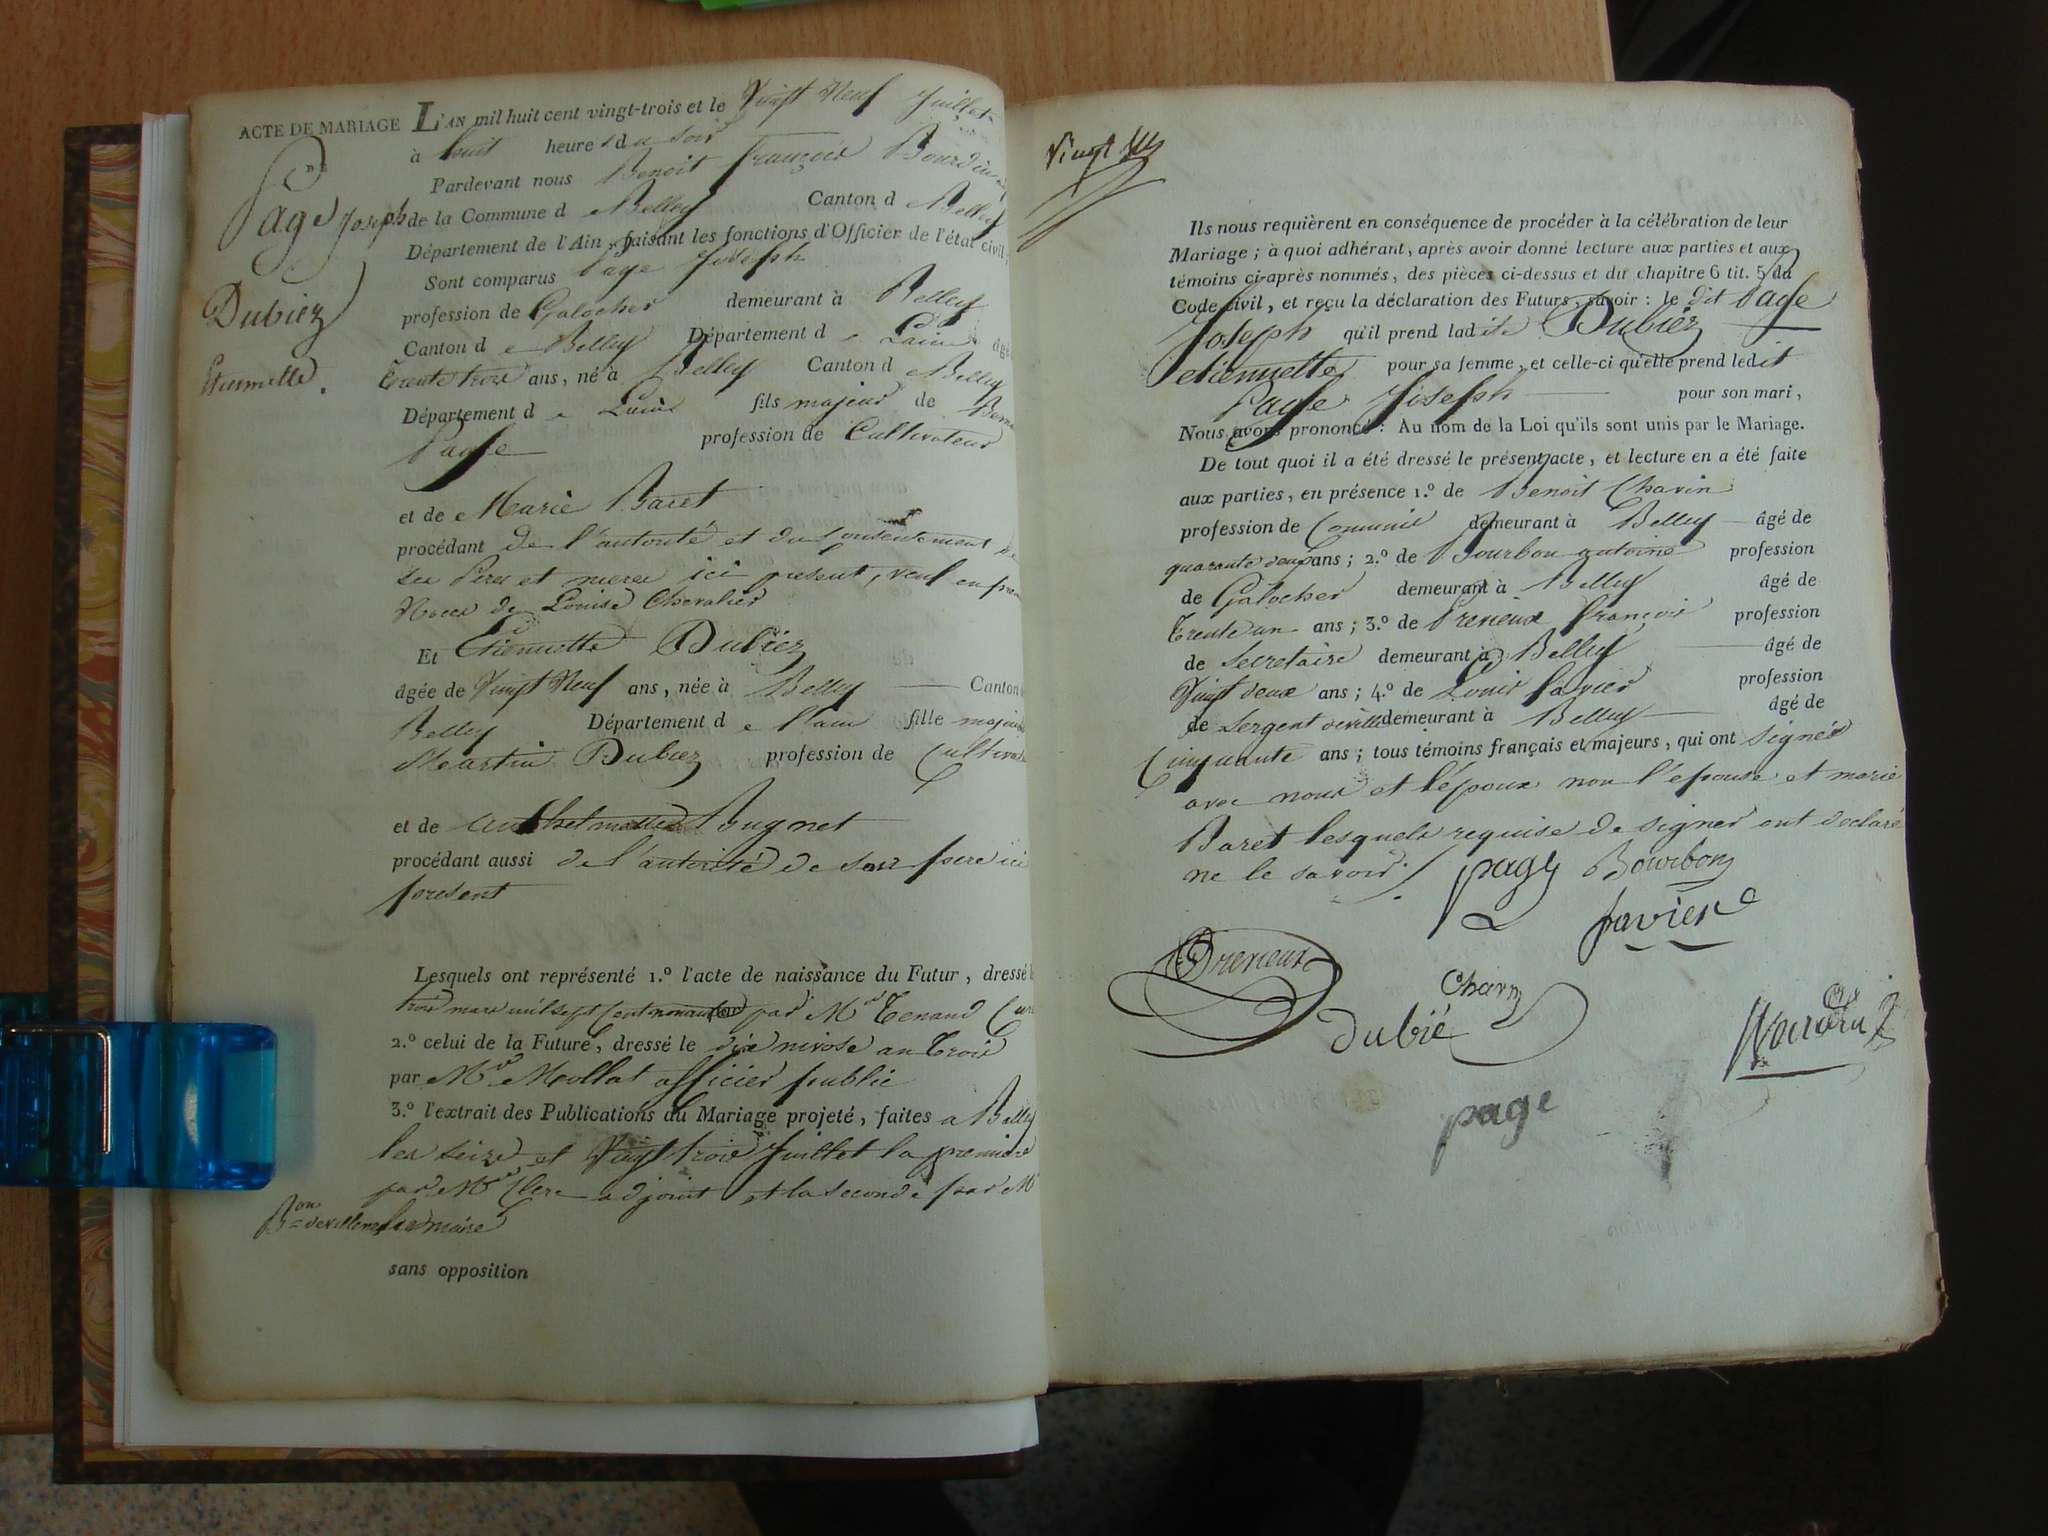 ACTE DE MARIAGE L'AN mil huit cent vingt-trois et le Vingt Neuf Juillet
à huit heures du soir
Pardevant nous Benoit François
Page Joseph
de la Commune de Belley Canton de Belley
Département de l'Ain, faisant les fonctions d'Officier de l'état civil,
Sont comparus Page Joseph
Dubiez
Etiennette.
profession de Galocher demeurant à Belley
Canton de Belley Département de Lain âgé
trente trois ans, né à Belley Canton de Belley
Département de Lain fils majeur de
Page profession de Cultivateur
et de Marie Baret
procédant de l'autorité et du Consentement de
ses Père et mere ici present, veuf en
Noces de Louise Chevalier
Et Etiennette Dubiez
âgée de Vingt Neuf ans, née à Belley Canton
Belley Département de l'ain fille majeure
Martin Dubiez profession de
et de Pougnet
procédant aussi de l'autorité de son pere ici
present
Lesquels ont représenté 1.º l'acte de naissance du Futur, dressé
trois mars mil sept Cent par Mr Tenand
2.º celui de la Future, dressé le dix nivose an trois
par Mr Mollat officier public
3.º l'extrait des Publications du Mariage projeté, faites a Belley
les seize et Vingt trois Juillet la premiere
par Mr Clerc adjoint, et la seconde par Mr
Bon le maire
sans opposition
Vingt
Ils nous requièrent en conséquence de procéder à la célébration de leur
Mariage; à quoi adhérant, après avoir donné lecture aux parties et aux
témoins ci-après nommés, des pièces ci-dessus et du chapitre 6 tit. 5 du
Code civil, et reçu la déclaration des Futurs, savoir: le dit Page
Joseph qu'il prend ladite Dubiez
etiennette pour sa femme, et celle-ci qu'elle prend ledit
Page Joseph pour son mari,
Nous avons prononcé: Au nom de la Loi qu'ils sont unis par le Mariage.
De tout quoi il a été dressé le présent acte, et lecture en a été faite
aux parties, en présence 1.º de Benoit Charin
profession de demeurant à Belley âgé de
quarante deux ans; 2.º de Bourbon antoine profession
de Galocher demeurant à Belley âgé de
trente un ans; 3.º de Prenieux François profession
de Secretaire demeurant à Belley âgé de
Vingt deux ans; 4.º de Louis Favier profession
de Sergent deville demeurant à Belley âgé de
Cinquante ans; tous témoins français et majeurs, qui ont signés
avec nous et l'époux non l'epouse et marie
Baret lesquels requise de signer ont declaré
ne le savoir.
page Bourbon
favier
Prenieux
Charin
dubié
page